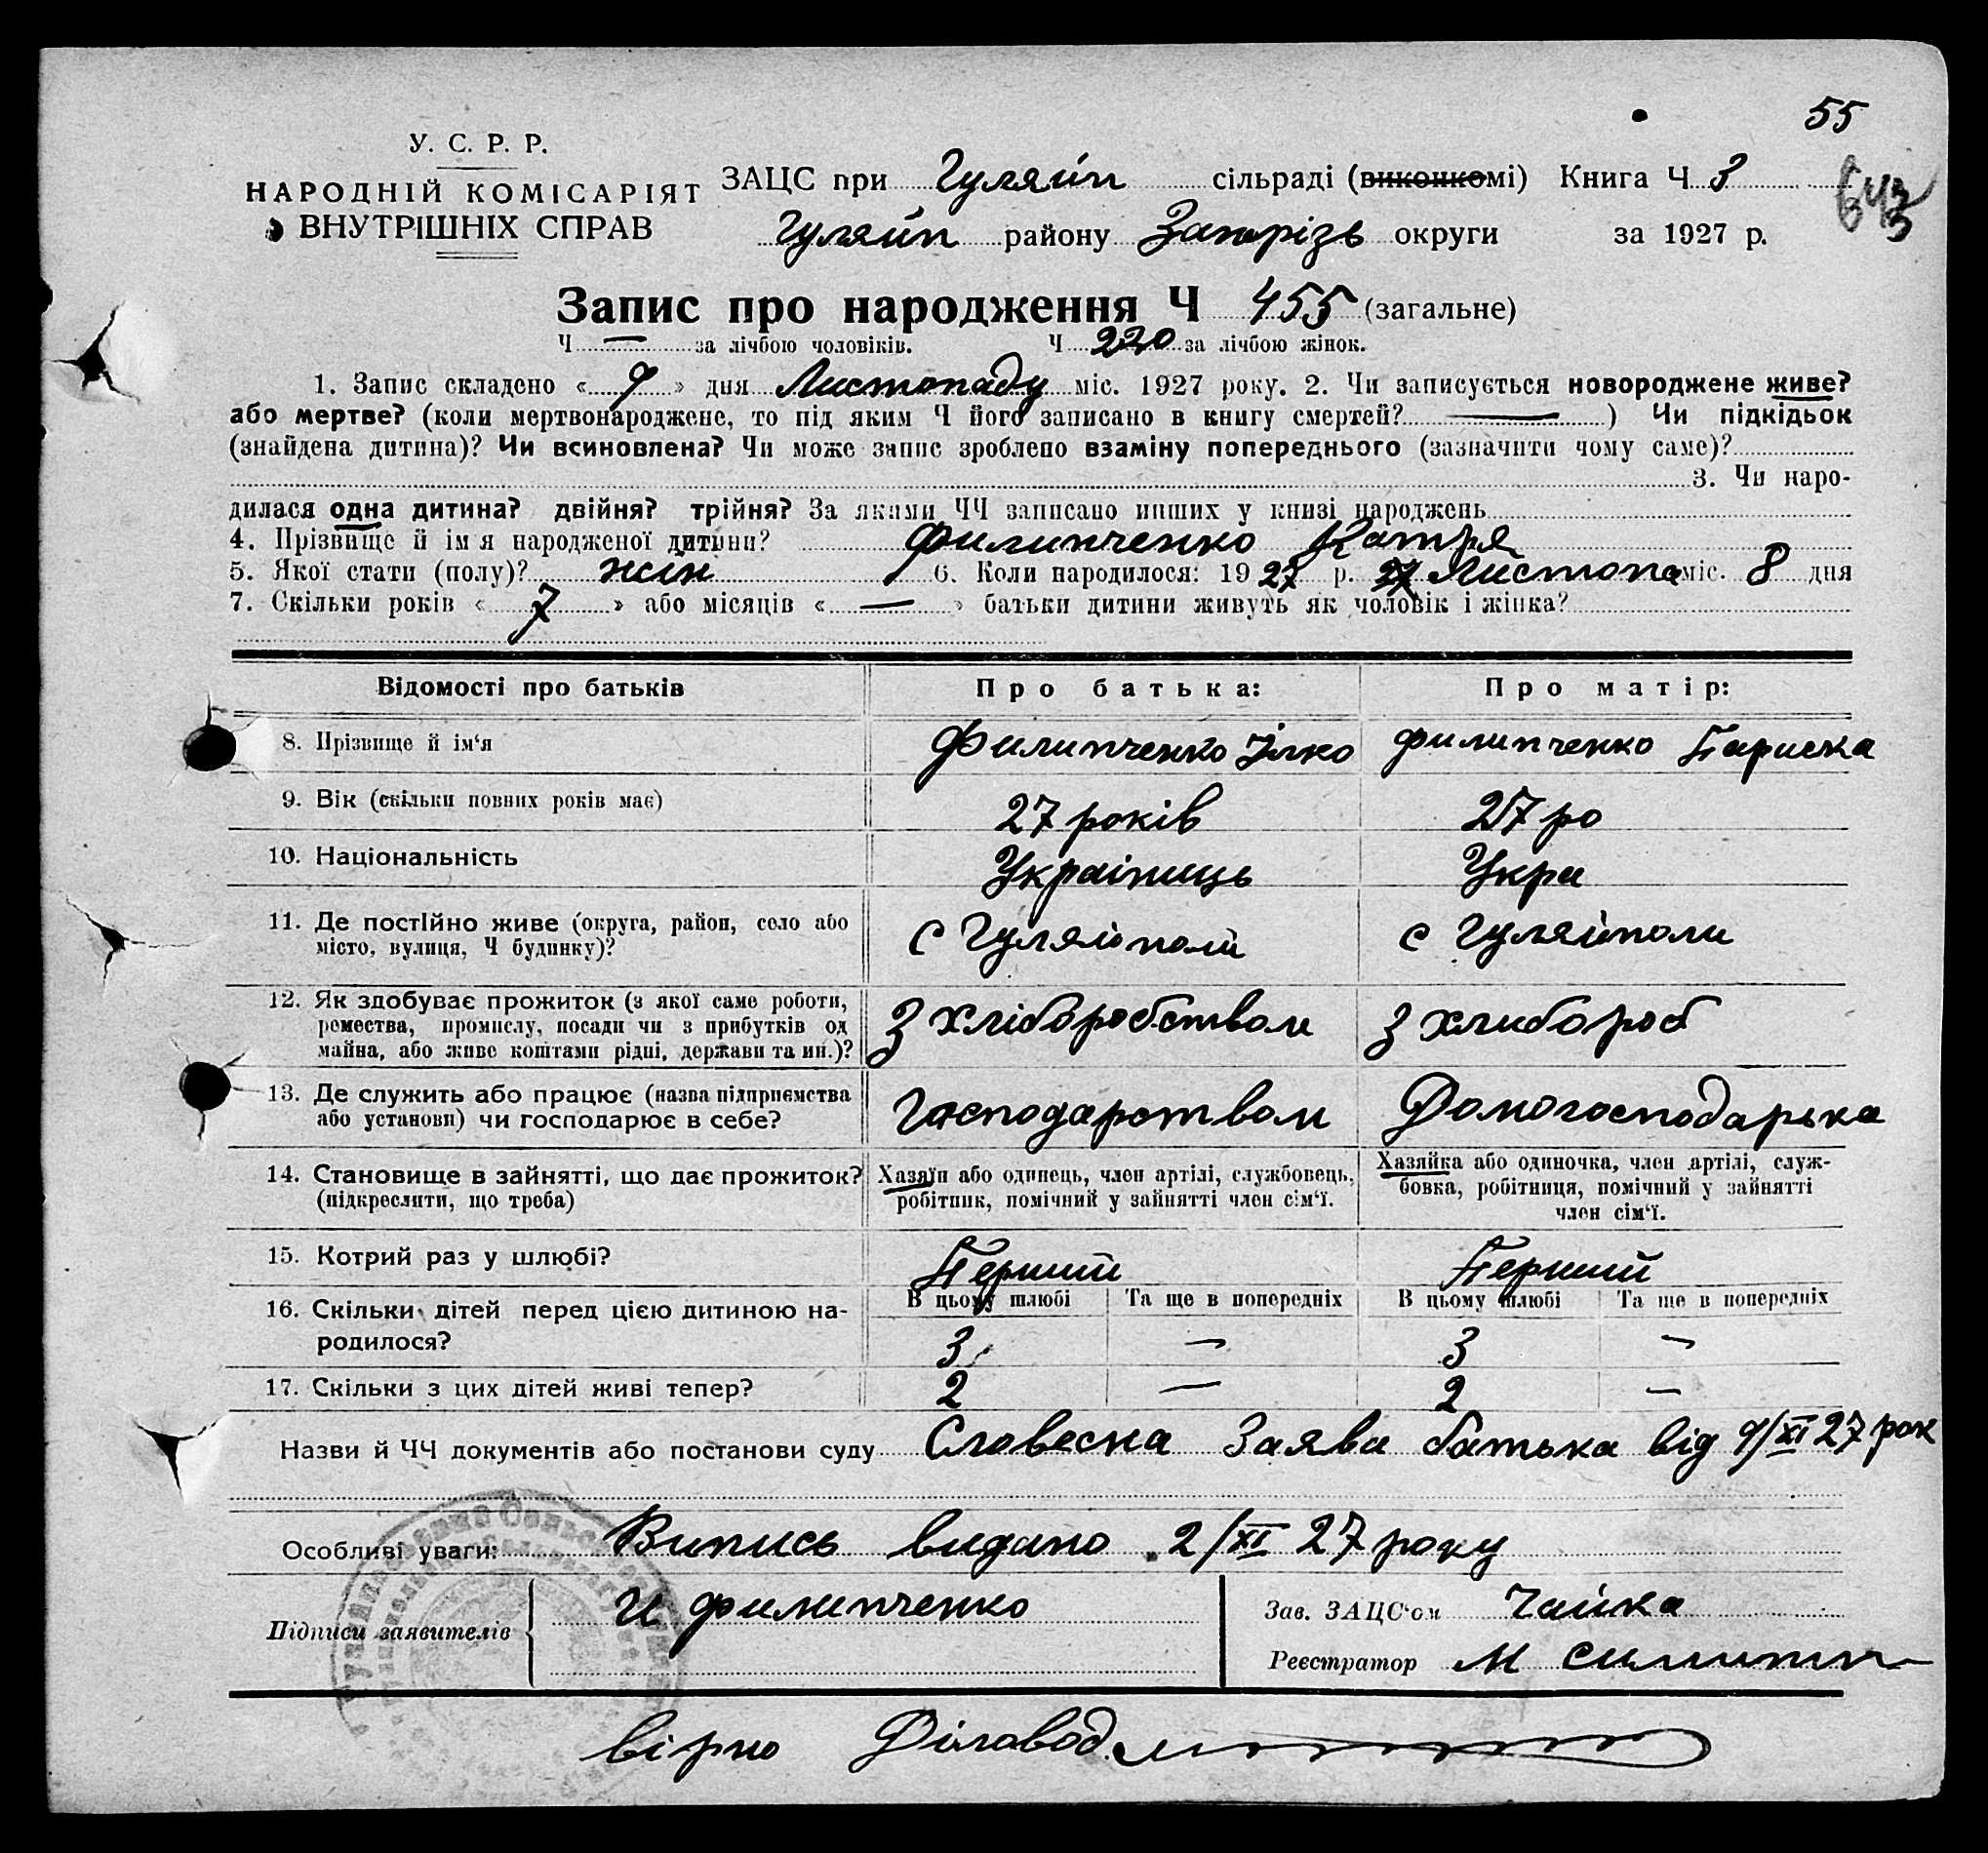 55
У. С. Р. Р.
НАРОДНІЙ КОМІСАРІЯТ
ВНУТРІШНІХ СПРАВ
ЗАЦС при Гуляйп сільраді (виконкомі) Книга Ч 3
643
Гуляйп району Запорізь округи за 1927 р.
Запис про народження Ч 455 (загальне)
Ч — за лічбою чоловіків. Ч 220 за лічбою жінок.
1. Запис складено « 9 » дня Листопаду міс. 1927 року. 2. Чи записується новороджене живе?
або мертве? (коли мертвонароджене, то під яким Ч його записано в книгу смертей? — ) Чи підкідьок
(знайдена дитина)? Чи всиновлена? Чи може запис зроблено взаміну попереднього (зазначити чому саме)?
3. Чи наро-
дилася одна дитина? двійня? трійня? За якими ЧЧ записано инших у книзі народжень
4. Прізвище й ім я народженої дитини? Филипченко Катря
5. Якої стати (полу)? жін 6. Коли народилося: 1927 р. Листопа міс. 8 дня
7. Скільки років « 7 » або місяців « — » батьки дитини живуть як чоловік і жінка?
Відомості про батьків Про батька: Про матір:
8. Прізвище й ім‘я Филипченко Ілко Филипченко Париска
9. Вік (скільки повних років має) 27 років 27 ро
10. Національність Українець Укра
11. Де постІйно живе (округа, район, село або
місто, вулиця, Ч будинку)? с Гуляйполи с Гуляйполи
12. Як здобуває прожиток (з якої саме роботи,
ремества, промислу, посади чи з прибутків од
майна, або живе коштами рідні, держави та ин.)? З хліборобством З хлибороб
13. Де служить або працює (назва підприємства
або установи) чи господарює в себе? Господарством Домогосподарька
14. Становище в зайнятті, що дає прожиток?
(підкреслити, що треба)
Хазяїн або одинець, член артілі, службовець,
робітник, помічний у зайнятті член сім‘ї.
Хазяйка або одиночка, член артілі, служ-
бовка, робітниця, помічний у зайнятті
член сім‘ї.
15. Котрий раз у шлюбі? Перший Перший
16. Скільки дітей перед цією дитиною на-
родилося?
В цьому шлюбі Та ще в попередніх В цьому шлюбі Та ще в попередніх
3 — 3 —
17. Скільки з цих дітей живі тепер? 2 — 2 —
Назви й ЧЧ документів або постанови суду Словесна Заява батька від 9/XI 27 рок
Особливі уваги: Випись видано 2/XI 27 року
Підписи заявителів И Филипченко
Зав. ЗАЦС‘ом Чайка
Реєстратор М
вірно Діловод